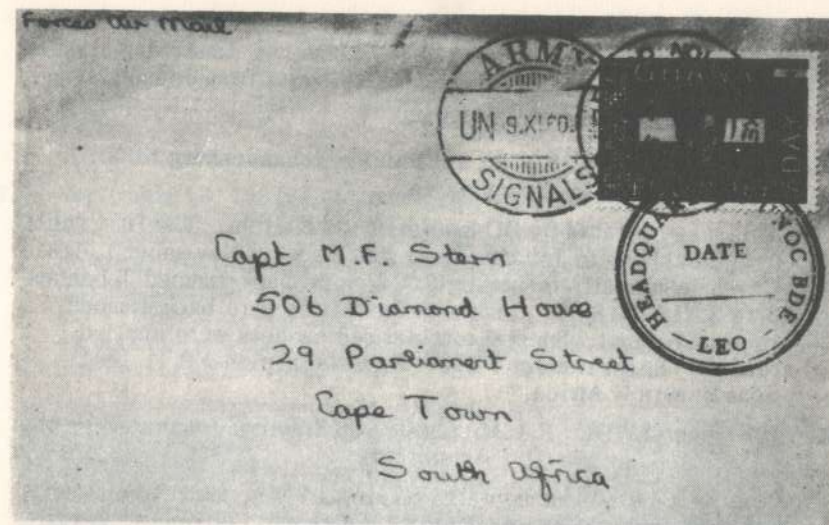 Forces Air Mail
ARMY
UN 9.XI.60.
SIGNALS
NOV
GHANA
HEADQUAR
UNOC BDE
DATE
LEO
Capt M.F. Stern
506 Diamond House
29 Parliament Street
Cape Town
South Africa